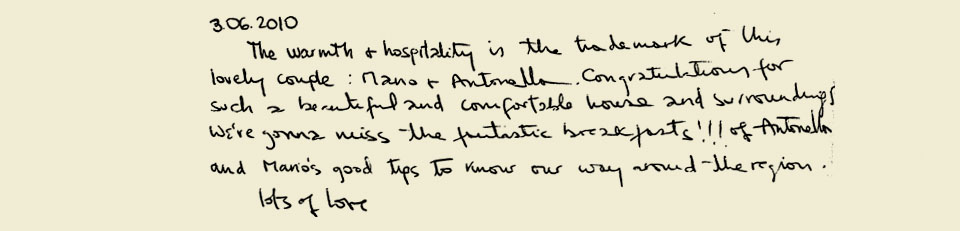 3.06.2010
The warmth & hospitality is the trademark of this
lovely couple : Mario & Antonella. Congratulations for
such a beautiful and comfortable house and surroundings
We're gonna miss the fantastic breakfasts!!! of Antonella
and Mario's good tips to know our way around the region.
lots of love